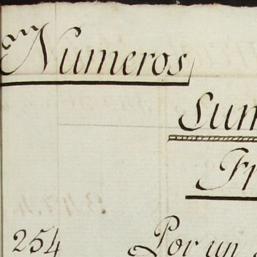 Numeros
Sum
Fr
254 Por un